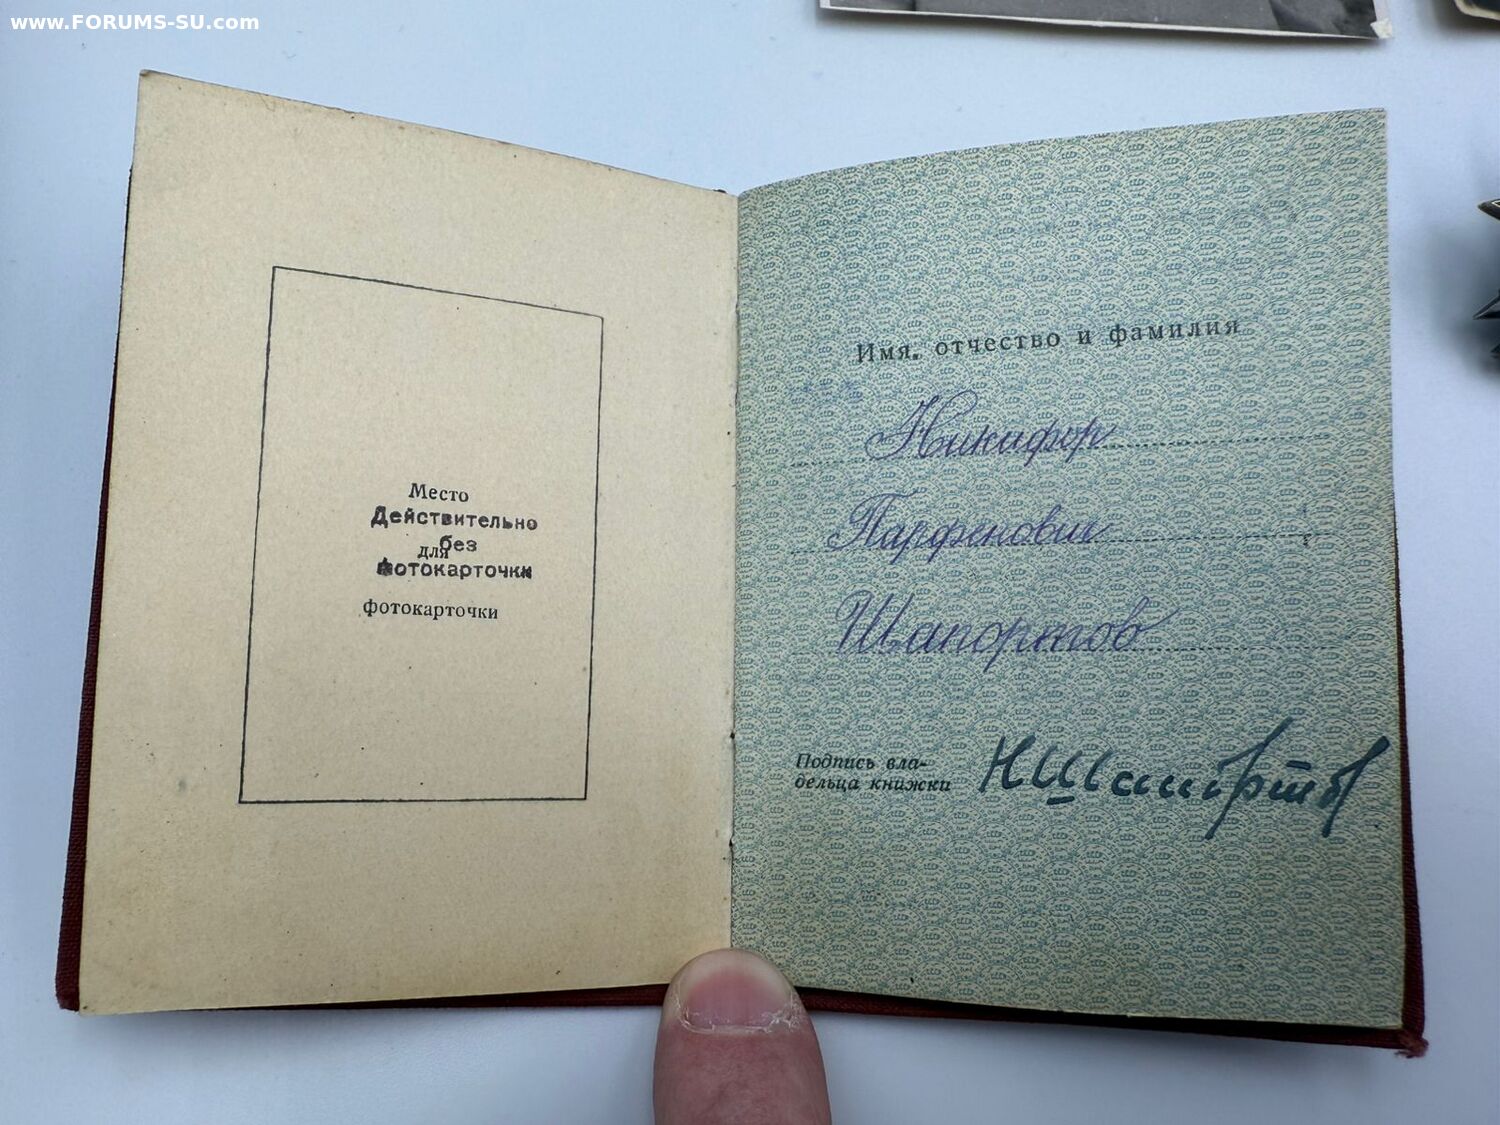 www.FORUMS-SU.com
Место
Действительно
без
для
фотокарточки
фотокарточки
Имя, отчество и фамилия
Никифор
Парфенович
Шапортов
Подпись вла-
дельца книжки
НШапортов